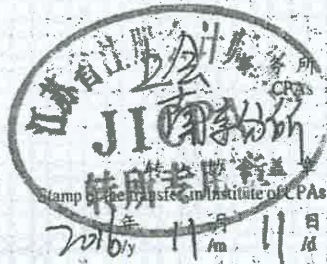 江苏省注册会计师
上会
务所
CPAs
JI
南京分所
转所专用
Stamp of the transfer-in Institute of CPAs
2016年 11月 11日
/y /m /d